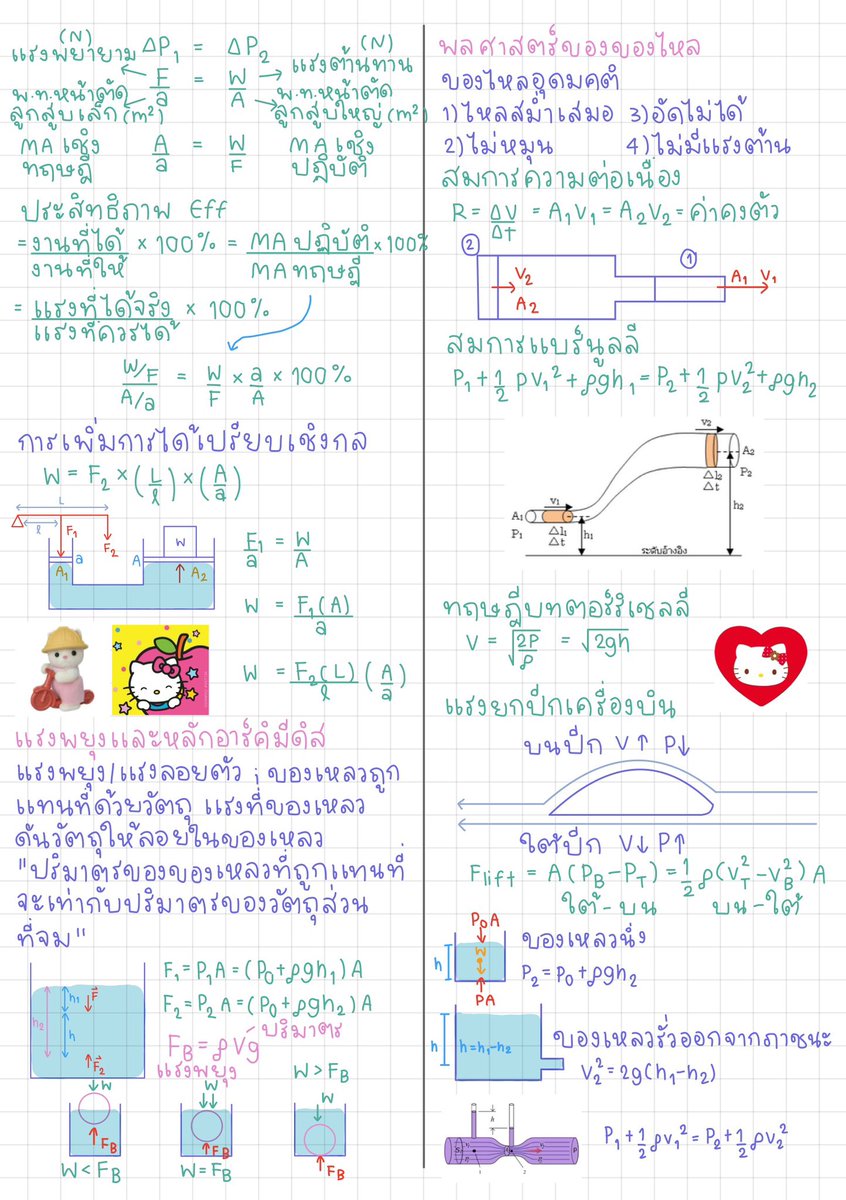 (N) (N)
แรงพยายาม ΔP₁ = ΔP₂ แรงต้านทาน
พ.ท.หน้าตัด F/a = W/A พ.ท.หน้าตัด
ลูกสูบเล็ก (m²) ลูกสูบใหญ่ (m²)
MA เชิง A/a = W/F MA เชิง
ทฤษฎี ปฏิบัติ
ประสิทธิภาพ Eff
= งานที่ได้/งานที่ให้ × 100% = MA ปฏิบัติ/MA ทฤษฎี × 100%
= แรงที่ได้จริง/แรงที่ควรได้ × 100%
W/F / A/a = W/F × a/A × 100%
การเพิ่มการได้เปรียบเชิงกล
W = F₂ × (L/l) × (A/a)
L
l F₁ F₂ W
a A
A₁ A₂
F₁/a = W/A
W = F₁(A)/a
W = F₂(L)/l (A/a)
แรงพยุงและหลักอาร์คิมีดิส
แรงพยุง/แรงลอยตัว ; ของเหลวถูก
แทนที่ด้วยวัตถุ แรงที่ของเหลว
ดันวัตถุให้ลอยในของเหลว
"ปริมาตรของของเหลวที่ถูกแทนที่
จะเท่ากับปริมาตรของวัตถุส่วน
ที่จม"
h₁ F
h₂ h
F₂
F₁ = P₁A = (P₀+ρgh₁)A
F₂ = P₂A = (P₀+ρgh₂)A
ปริมาตร
F_B = ρVg
แรงพยุง
W W W > F_B
W
F_B F_B F_B
W < F_B W = F_B
พลศาสตร์ของของไหล
ของไหลอุดมคติ
1) ไหลสม่ำเสมอ 3) อัดไม่ได้
2) ไม่หมุน 4) ไม่มีแรงต้าน
สมการความต่อเนื่อง
R = ΔV/Δt = A₁V₁ = A₂V₂ = ค่าคงตัว
② ①
V₂ A₁ V₁
A₂
สมการแบร์นูลลี
P₁ + 1/2 ρv₁² + ρgh₁ = P₂ + 1/2 ρv₂² + ρgh₂
v₂
A₂
P₂
Δl₂
Δt
h₂
v₁
A₁
P₁ Δl₁ h₁
Δt
ระดับอ้างอิง
ทฤษฎีบทตอร์ริเชลลี
V = √(2P/ρ) = √2gh
แรงยกปีกเครื่องบิน
บนปีก V↑ P↓
ใต้ปีก V↓ P↑
Flift = A(P_B − P_T) = 1/2 ρ(V_T² − V_B²)A
ใต้-บน บน-ใต้
P₀A
ของเหลวนิ่ง
h W
P₂ = P₀ + ρgh₂
PA
ของเหลวรั่วออกจากภาชนะ
h h = h₁−h₂
V₂² = 2g(h₁−h₂)
h
1 2
P₁ + 1/2 ρv₁² = P₂ + 1/2 ρv₂²